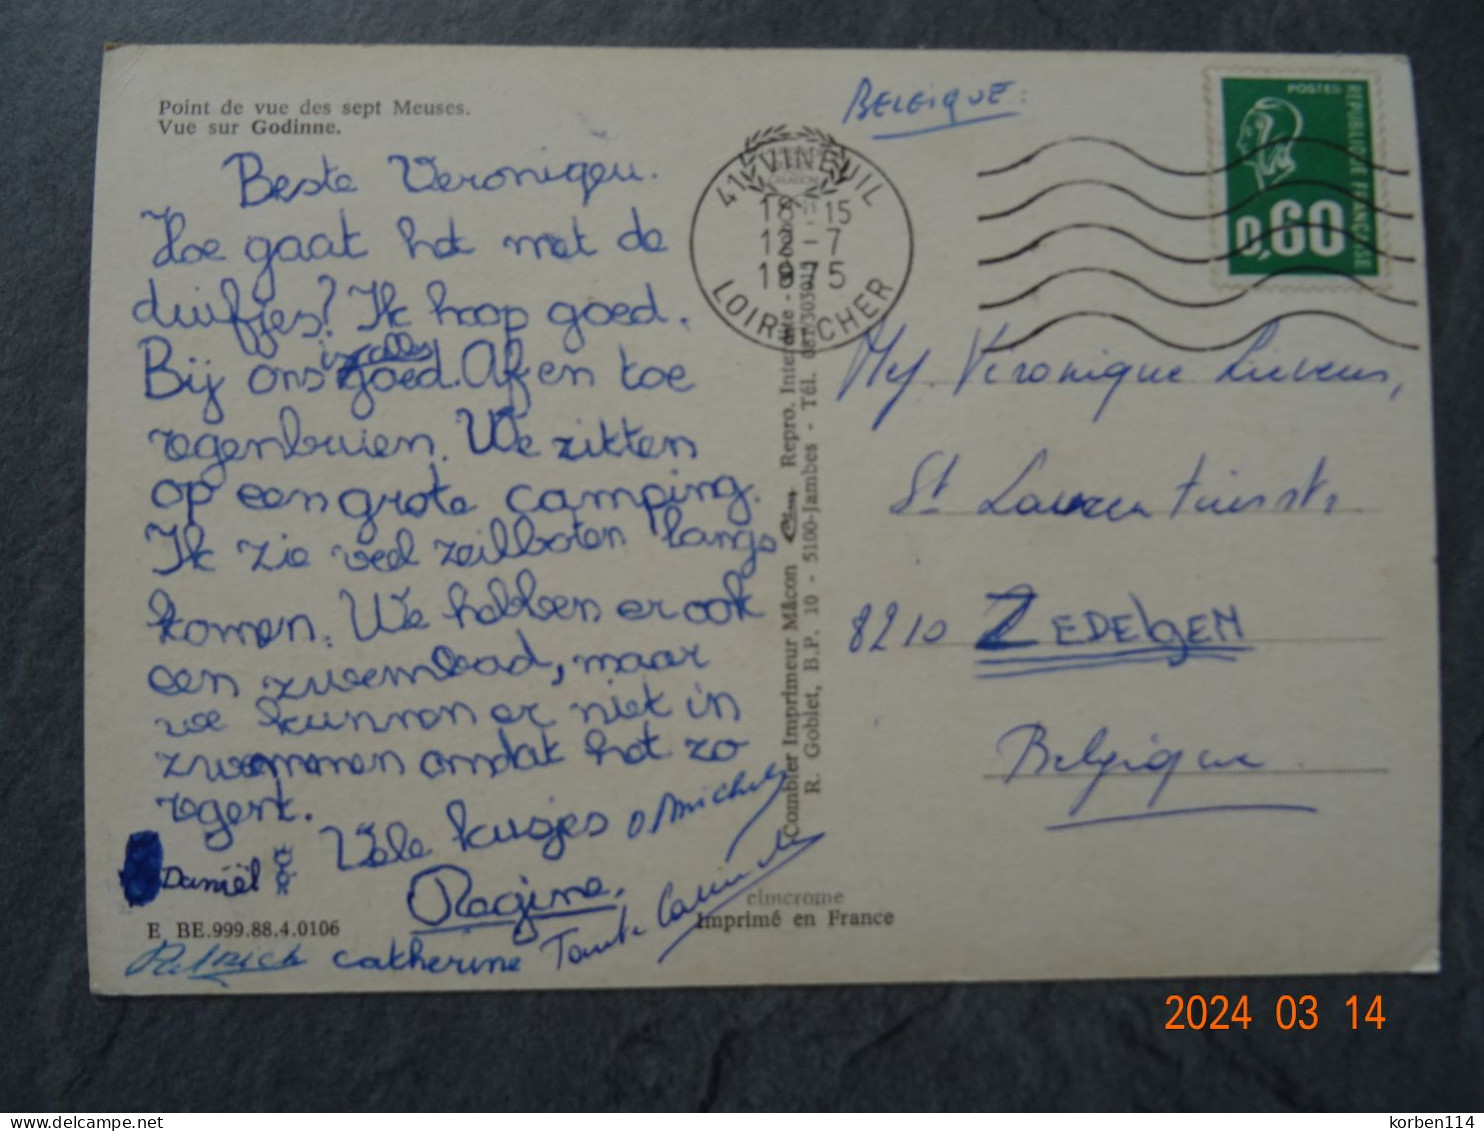 Point de vue des sept Meuses.
Vue sur Godinne.
Beste Veroniqeu.
Hoe gaat het met de
duifjes? Ik hoop goed.
Bij ons is alles goed. Af en toe
regenbuien. We zitten
op een grote camping.
Ik zie veel zeilboten langs
komen. We hebben er ook
een zwembad, maar
we kunnen er niet in
zwemmen omdat het zo
regent.
Vele kusjes
Regine.
Daniël
E BE.999.88.4.0106
Patrick Catherine Tante
cimcrome
Imprimé en France
Combier Imprimeur Mâcon Cim Repro. Interdite
R. Goblet, B.P. 10 - 5100-Jambes - Tél. 081/303013
41 VINEUIL
15
12-7
1975
LOIR CHER
BELGIQUE:
POSTES
REPUBLIQUE FRANÇAISE
0,60
Mej. Véronique Lievens,
St Laurentiusstr.
8210 ZEDELGEM
Belgique
2024 03 14
korben114